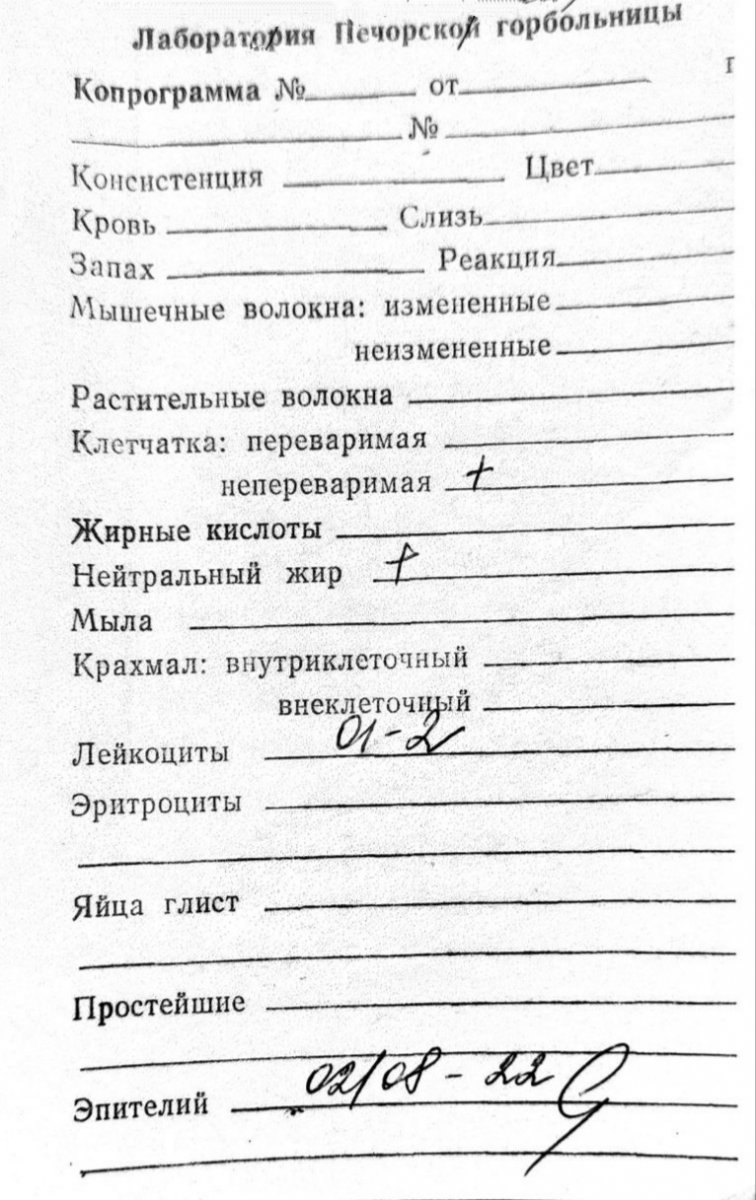 Лаборатория Печорской горбольницы
Копрограмма № от
№
Консистенция Цвет
Кровь Слизь
Запах Реакция
Мышечные волокна: измененные
неизмененные
Растительные волокна
Клетчатка: переваримая
непереваримая +
Жирные кислоты
Нейтральный жир +
Мыла
Крахмал: внутриклеточный
внеклеточный
Лейкоциты 01-2
Эритроциты
Яйца глист
Простейшие
02/08-22
Эпителий